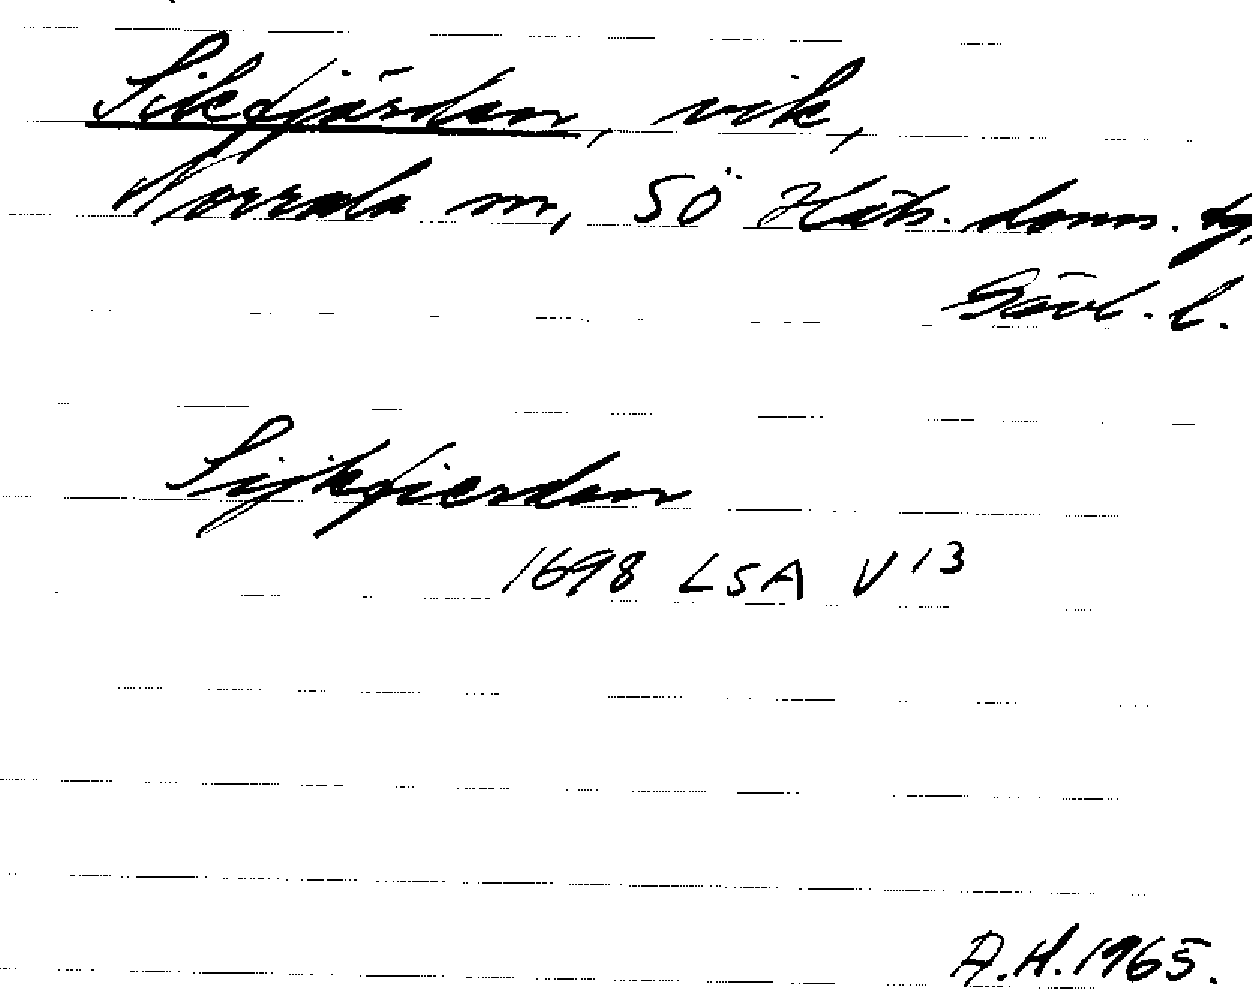 Sikfjärden, vik,
Norrala sn, SÖ Häls. doms. tg,
Gävl. l.
Sijkfierden
1698 LSA V 13
A.H. 1965.